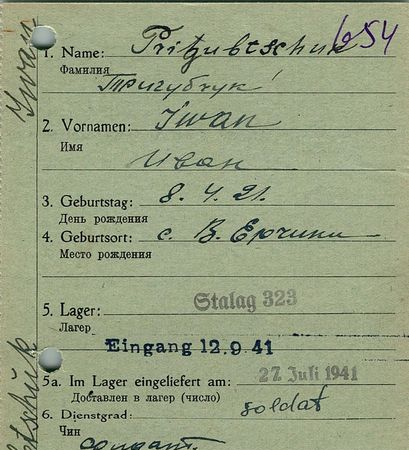 1. Name: Pritzubtschuk 654
Фамилия
Тригубчук
2. Vornamen: Iwan
Имя
Иван
3. Geburtstag: 8. 4. 21.
День рождения
4. Geburtsort: с. В. Ерчики
Место рождения
5. Lager: Stalag 323
Лагер
Eingang 12.9.41
5a. Im Lager eingeliefert am: 27. Juli 1941
Доставлен в лагер (число)
6. Dienstgrad: soldat
Чин
солдат.
Iwan